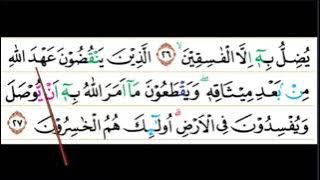 يُضِلُّ بِهٖٓ اِلَّا الْفٰسِقِيْنَۙ ٢٦ الَّذِيْنَ يَنْقُضُوْنَ عَهْدَ اللّٰهِ
مِنْۢ بَعْدِ مِيْثَاقِهٖۖ وَيَقْطَعُوْنَ مَآ اَمَرَ اللّٰهُ بِهٖٓ اَنْ يُّوْصَلَ
وَيُفْسِدُوْنَ فِى الْاَرْضِۗ اُولٰۤىِٕكَ هُمُ الْخٰسِرُوْنَ ٢٧